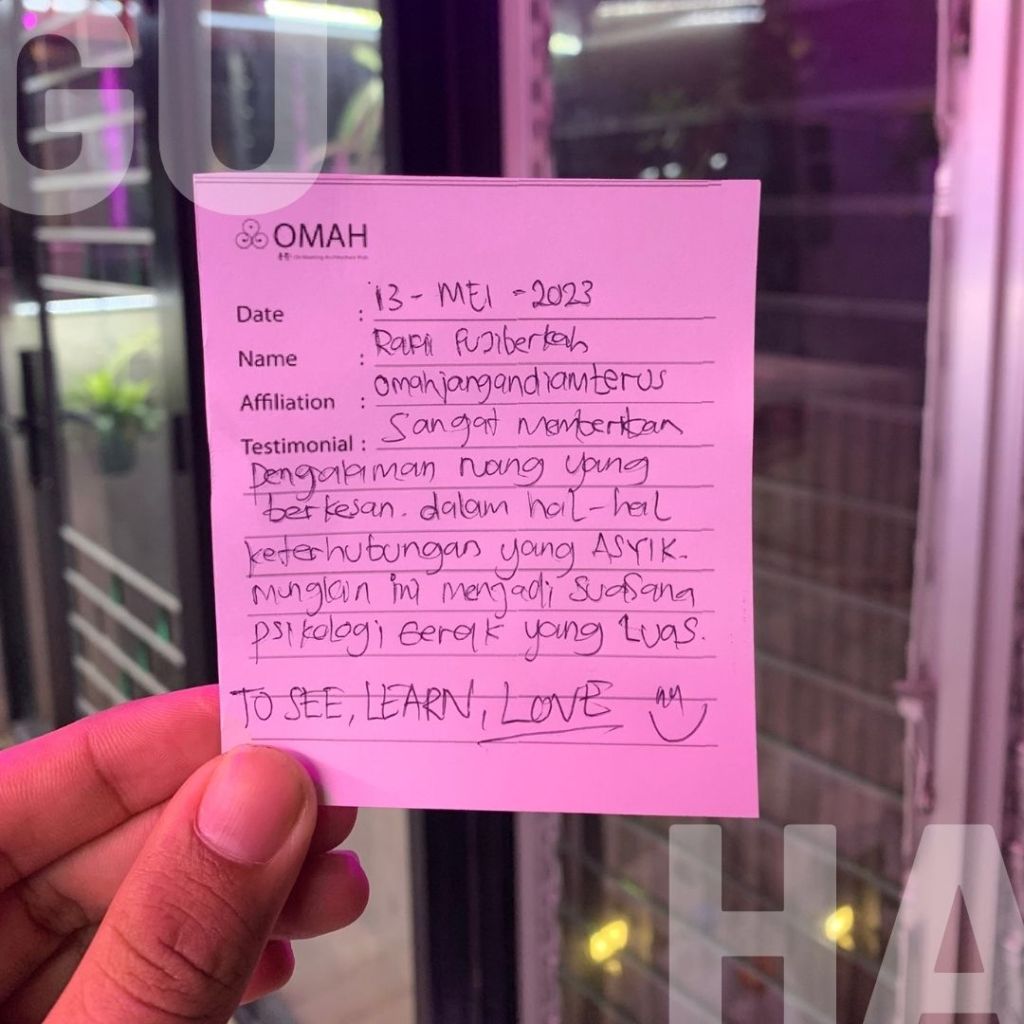 GU
OMAH
Date : 13 - MEI - 2023
Name : Rapii Pujiberkah
Affiliation : omahjangandiamterus
Testimonial : Sangat memberikan
pengalaman ruang yang
berkesan. dalam hal-hal
keterhubungan yang ASYIK.
mungkin ini menjadi suasana
psikologi Gerak yang Luas.
TO SEE, LEARN, LOVE
HA